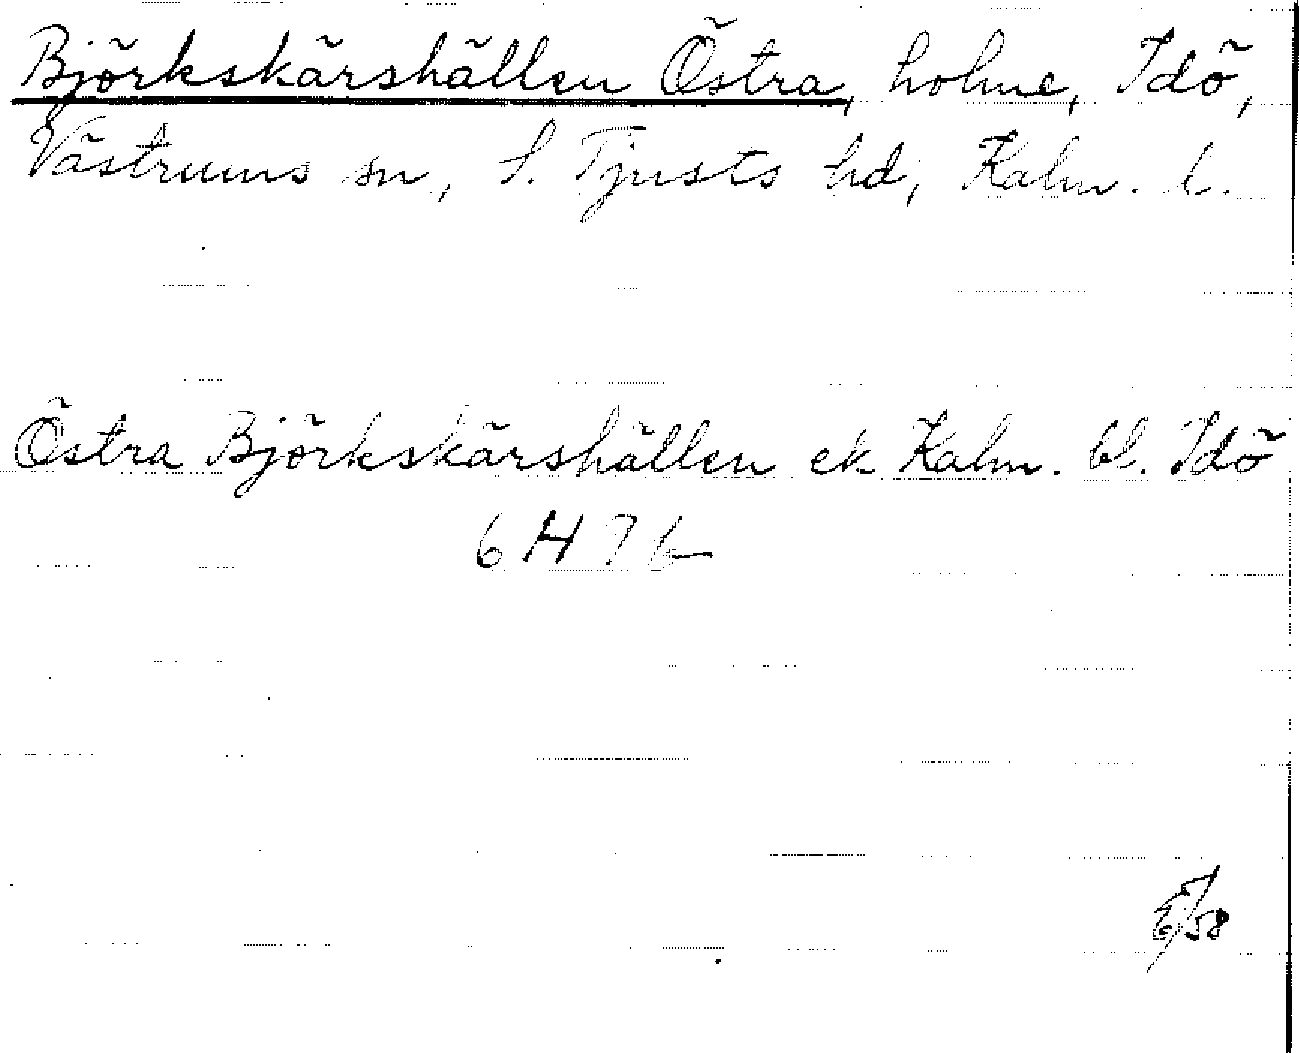 Björkskärshällen Östra, holme, Idö,
Västrums sn, S. Tjusts hd, Kalm. l.
Östra Björkskärshällen ek Kalm. bl. Idö
6H7b